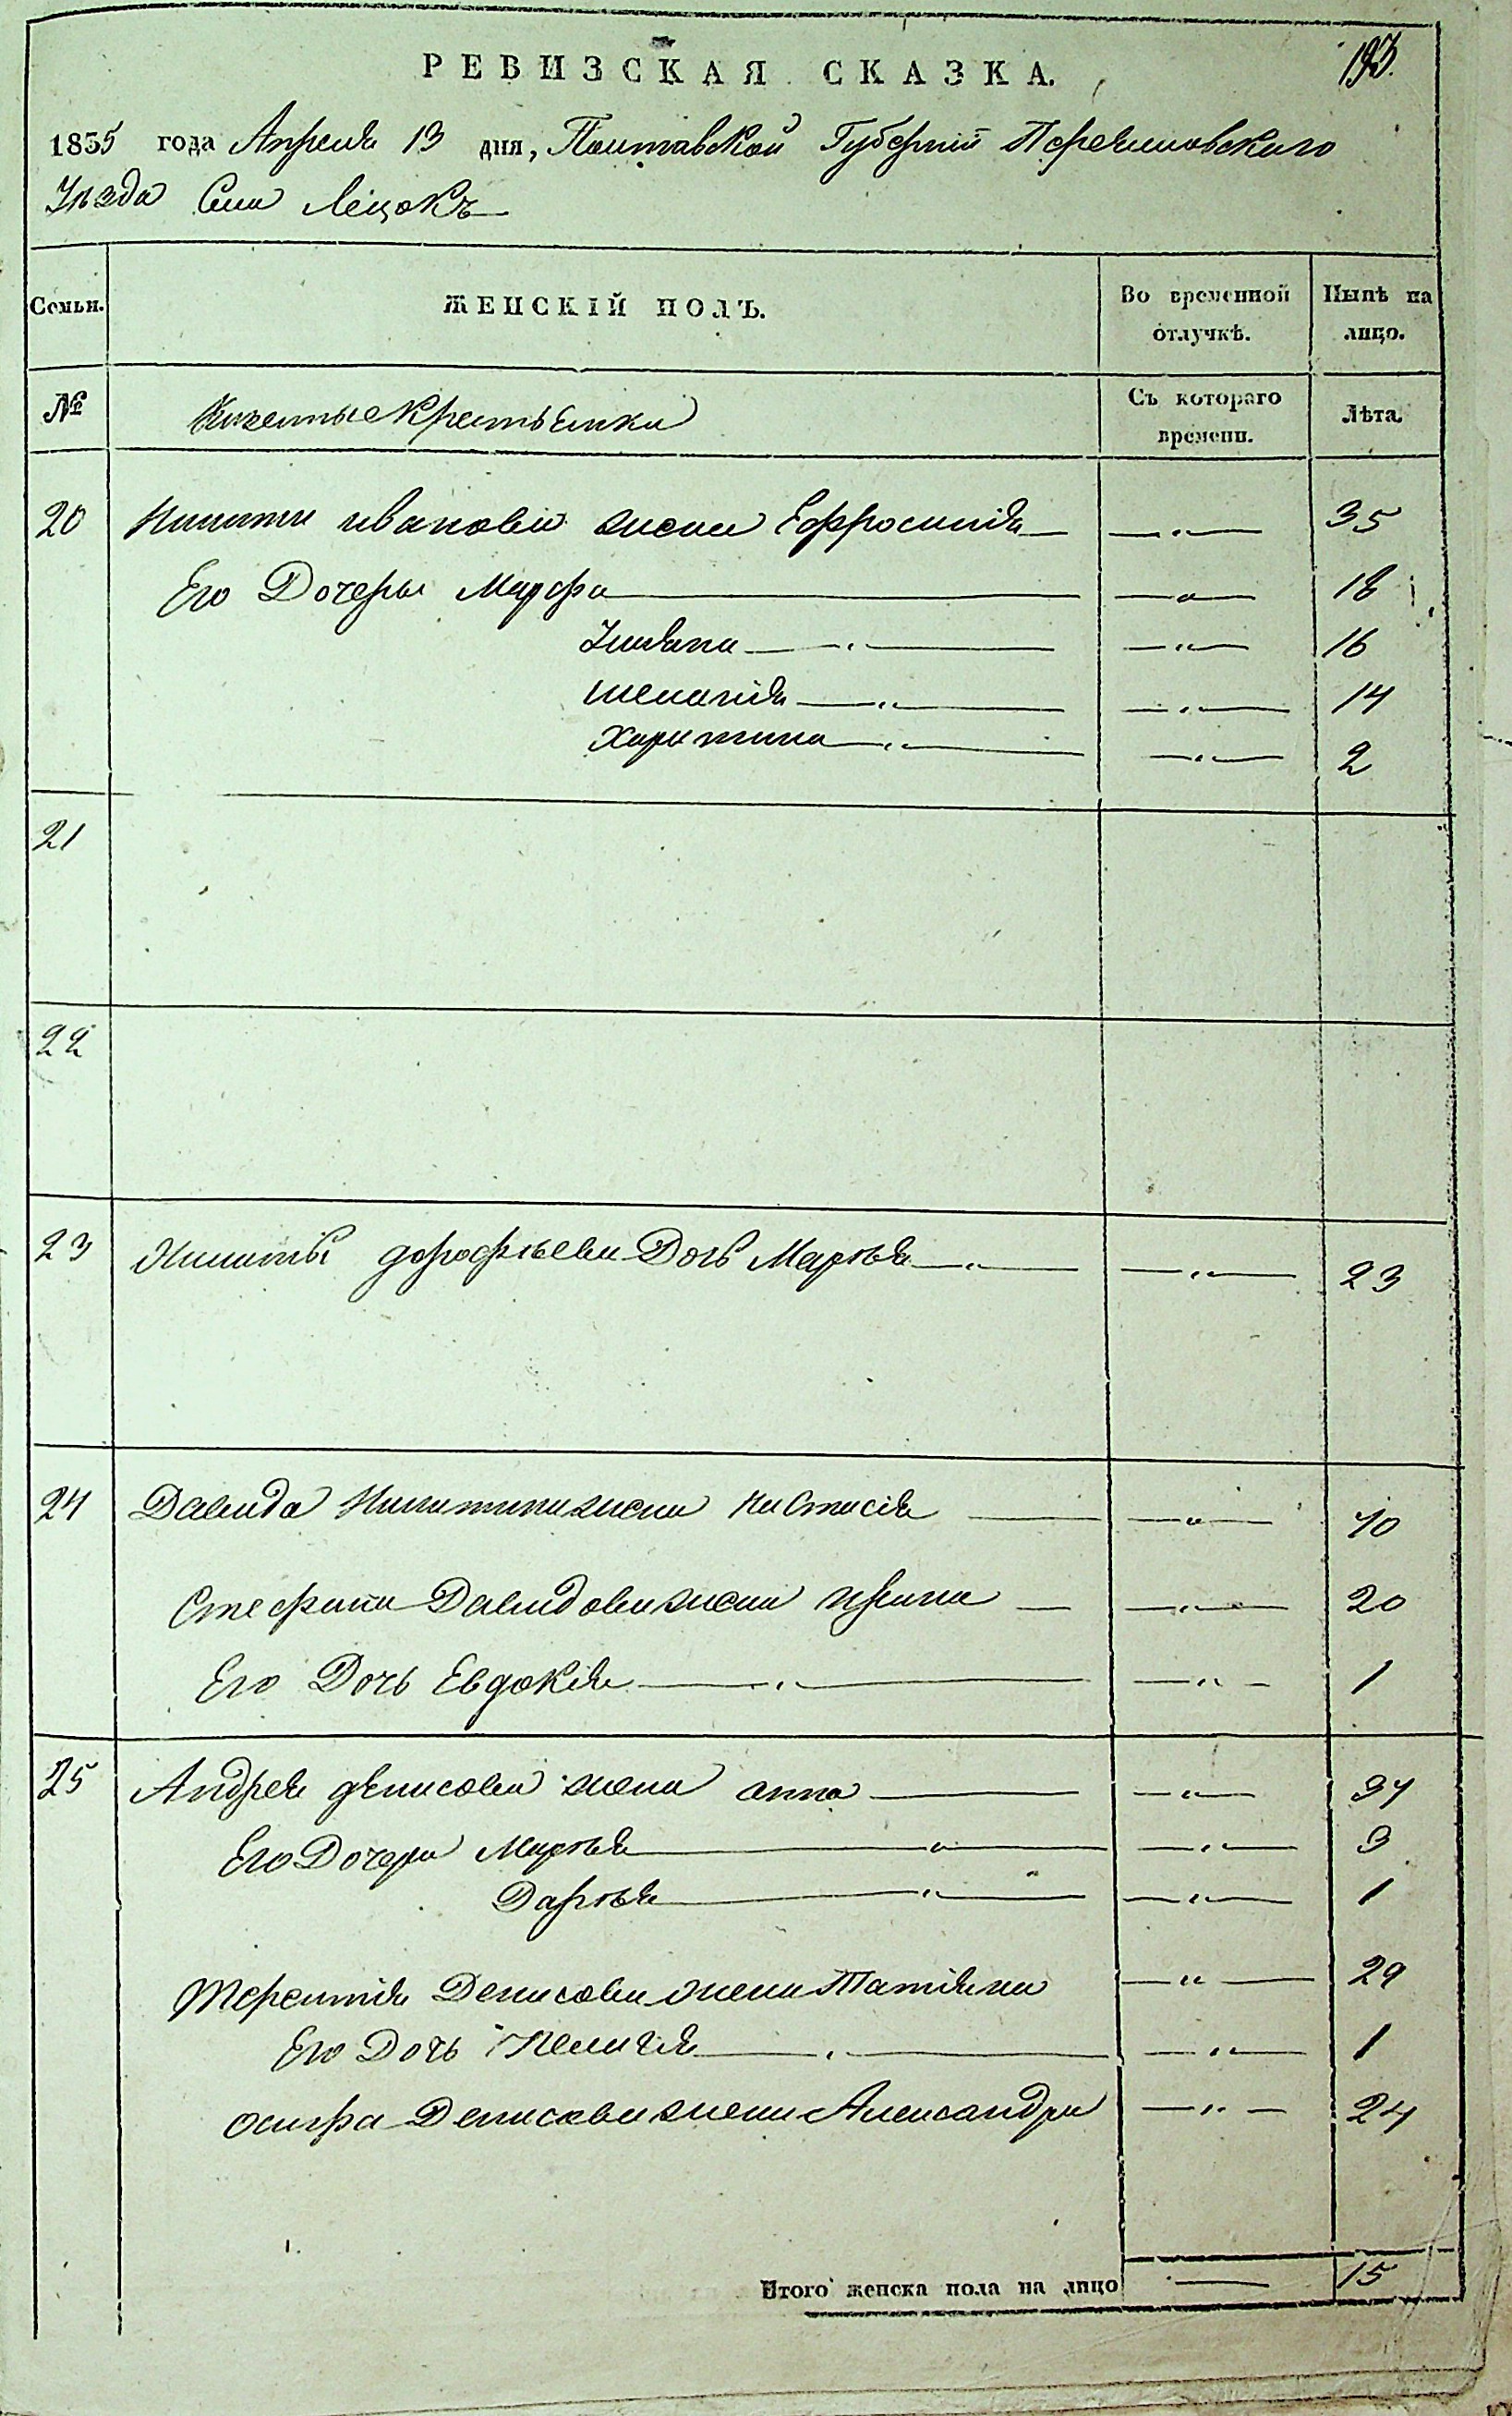 193.
РЕВИЗСКАЯ СКАЗКА.
1835 года Апреля 13 дня, Полтавской Губерніи
Уезда Села Лецокъ
Семьи. ЖЕНСКІЙ ПОЛЪ. Во временной отлучкѣ. Нынѣ на лицо.
№ Крестьянки Съ котораго времени. Лѣта.
20 Никиты иванова жена Ефросинія — „ — 35
Его Дочеры Марфа — „ — 18
Улияна — „ — 16
— „ — 14
Харитина — „ — 2
21
22
23 Никиты дорофѣева Дочь Марѣя — „ — 23
24 Давида Никитина жена настасія — „ — 40
Стефана Давидова жена ирина — „ — 20
Его Дочь Евдокія — „ — 1
25 Андрея денисова жена анна — „ — 34
Его Дочери Марѣя — „ — 3
Дарѣя — „ — 1
Терентія Денисова жена Татіяна — „ — 29
Его Дочь Пелагія — „ — 1
осипа Денисова жена Александра — „ — 24
Итого женска пола на лицо — 15